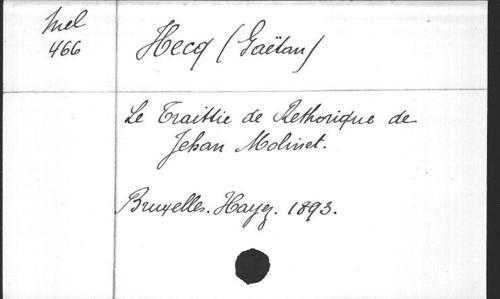 Mel
466
Hecq (Gaëtan)
Le Traittie de Rethorique de
Jehan Molinet.
Bruxelles. Hayez. 1893.